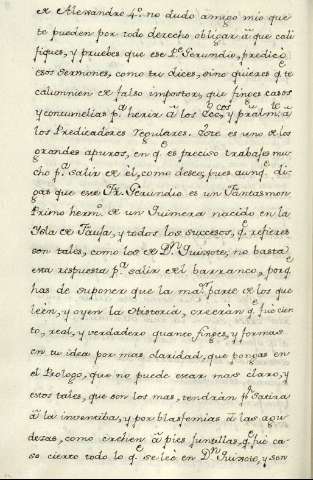 de Alexandro 4.º no dudo amigo mio que
te pueden por todo derecho obligar à que cali
fiques, y pruebes que ese P.e Gerundio, predicò
esos sermones, como tu dices, sino quieres q.e te
calumnien de falso impostor, que finges casos
y contumelias p.a herir à los Ecc.cos y
los Predicadores Regulares. Este es uno de los
grandes apuros, en q.e es preciso trabajes mu
cho p.a salir de èl, como deseo, pues aunq.e di
gas que ese Fr. Gerundio es un Fantasmon
Primo herm.o de un Quimera nacido en la
Isla de Faula, y todos los sucesos, q.e refieres
son tales, como los de D.n Quixote, no basta
esta respuesta p.a salir del barranco, porq.e
has de suponer que la maior parte de los que
leèn, y oyen la Historia, creeràn q.e fue cier
to, real, y verdadero quanto finges, y formas
en tu idea por mas claridad, que pongas en
el Prologo, que no puede estar mas claro, y
estos tales, que son los mas, tendràn p.r Satira
à la inventiba, y por blasfemias à las agu
dezas, como creèn à pies funtillas, q.e fuè ca
so cierto todo lo q.e se leè en D.n Quixote, y son